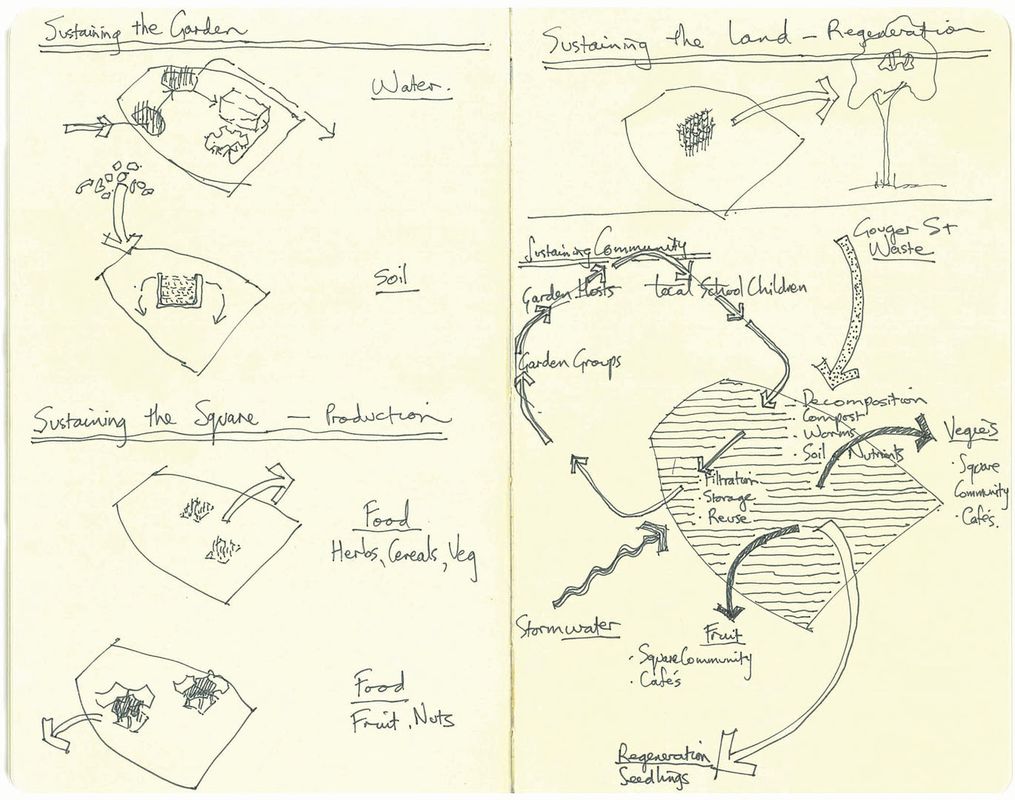 Sustaining the Garden
Water.
Soil
Sustaining the Square - Production
Food
Herbs, Cereals, Veg
Food
Fruit, Nuts
Sustaining the Land - Regeneration
Gouger St
Waste
Sustaining Community
Garden Hosts
Local School Children
Garden Groups
Decomposition
· Compost
· Worms
· Soil Nutrients
Vegie's
· Square
Community
· Cafés.
· Filtration
· Storage
· Reuse
Stormwater
Fruit
· Square Community
· Cafés
Regeneration
Seedlings